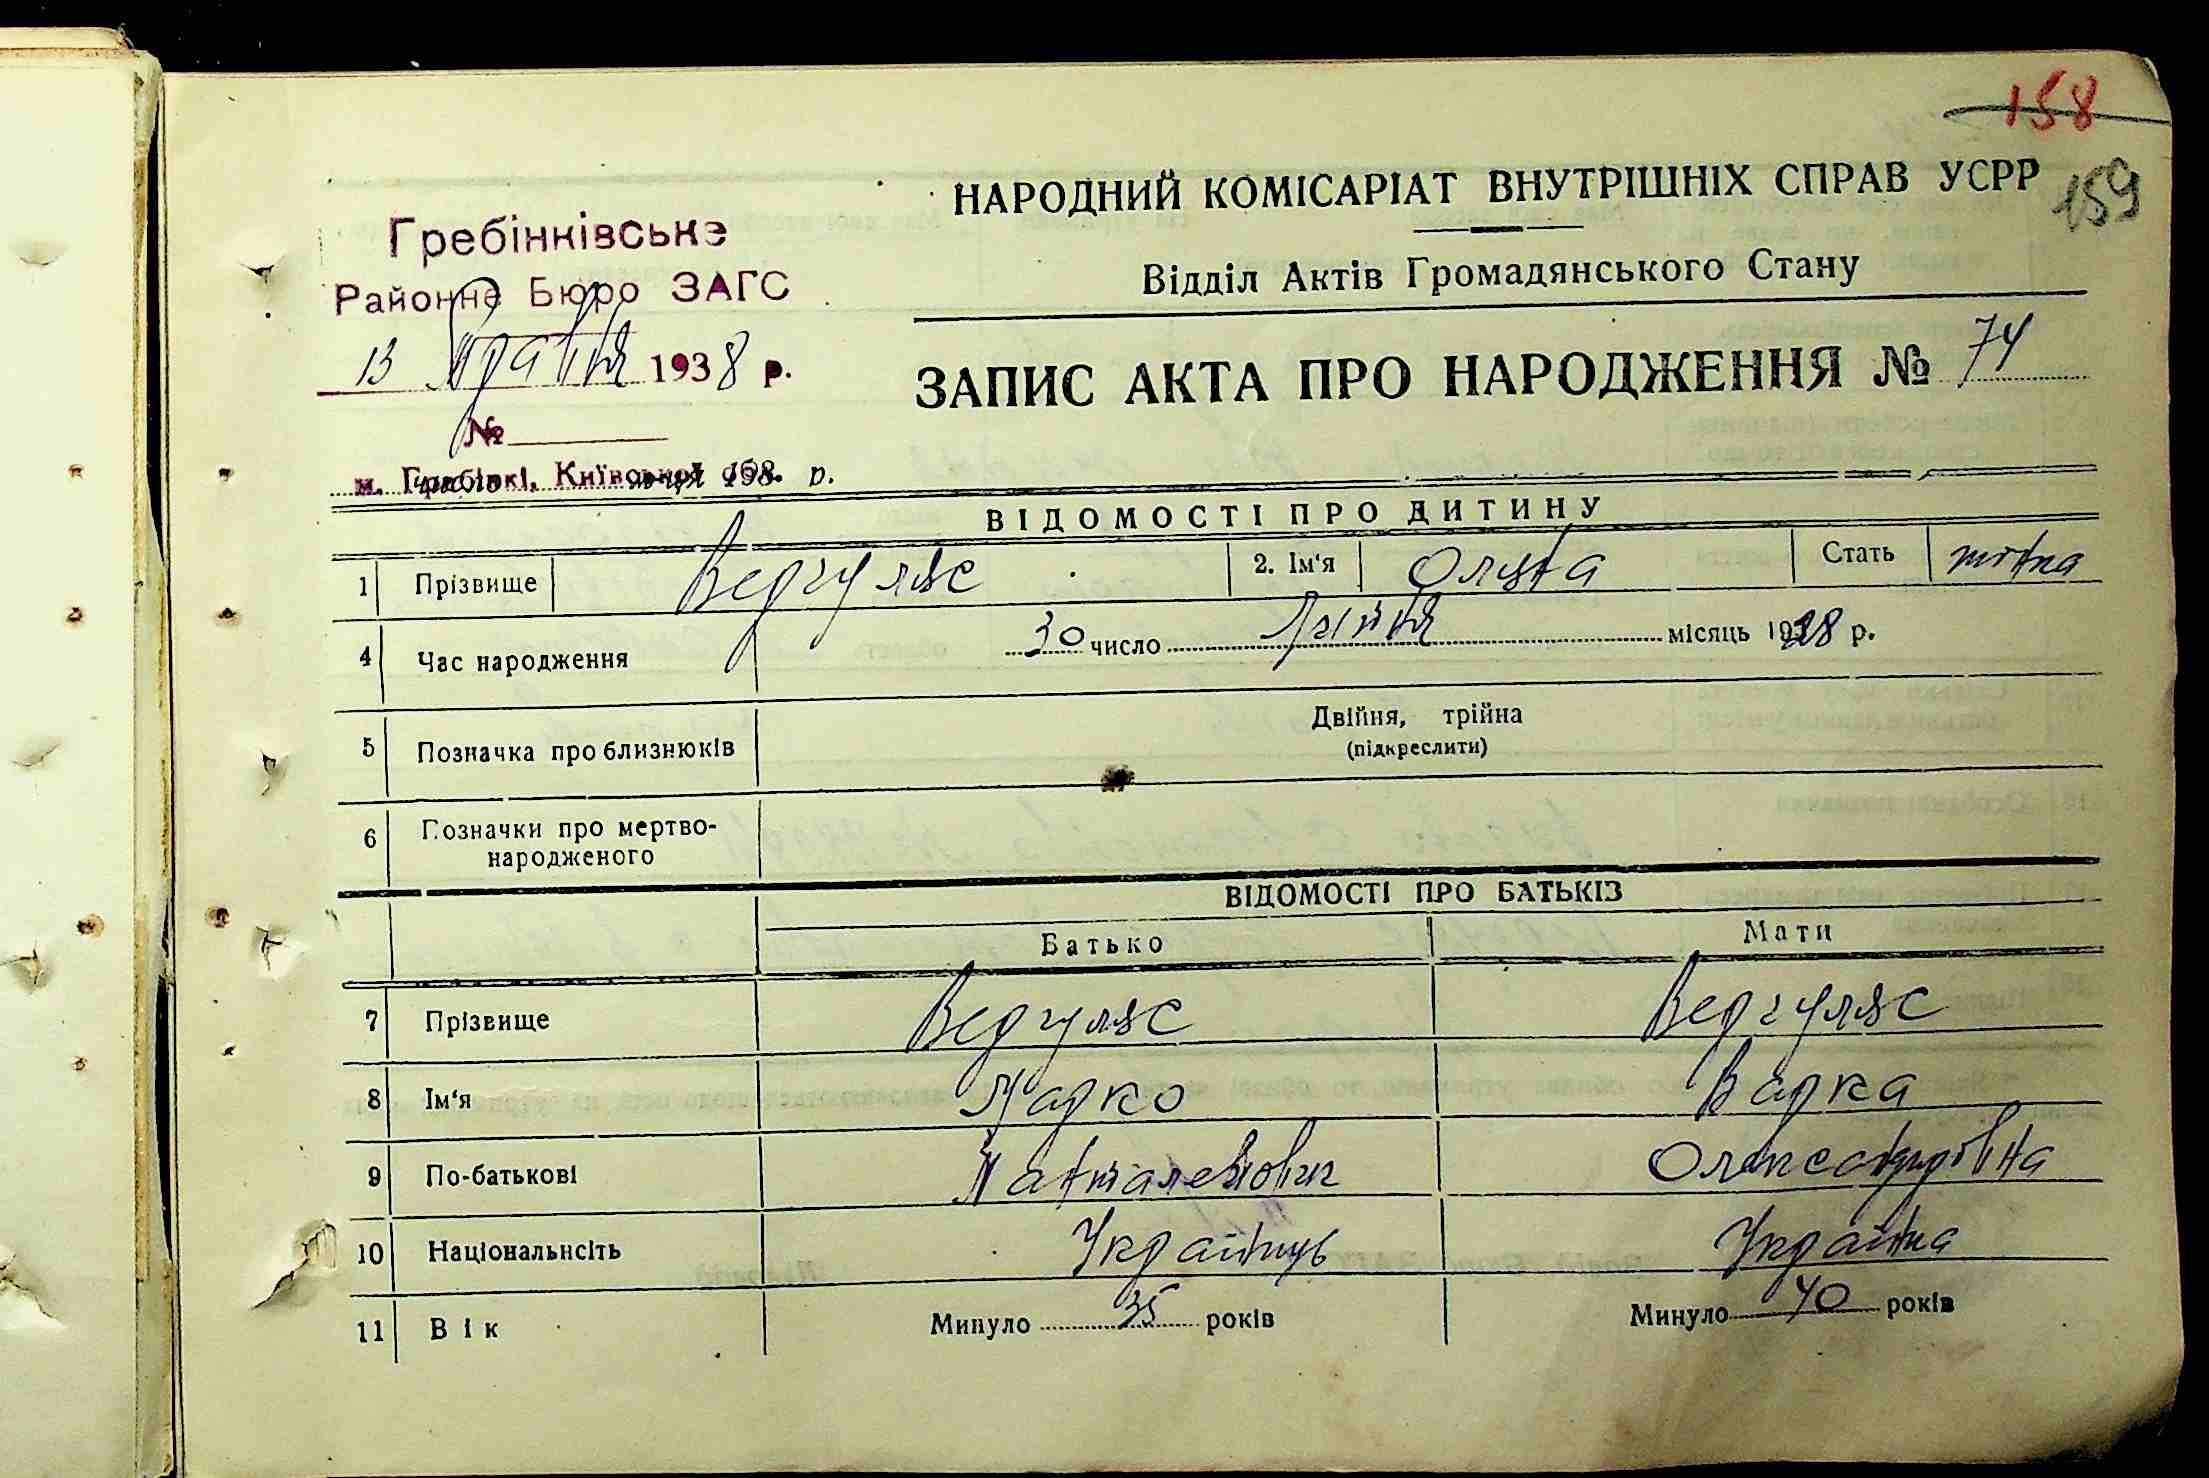 158
159
НАРОДНИЙ КОМІСАРІАТ ВНУТРІШНІХ СПРАВ УСРР
Відділ Актів Громадянського Стану
Гребінківське
Районне Бюро ЗАГС
13 травня 1938 р.
№
м. Гребінкі, Київської обл.
ЗАПИС АКТА ПРО НАРОДЖЕННЯ № 74
ВІДОМОСТІ ПРО ДИТИНУ
1 Прізвище Вергуляс 2. Ім'я Оляна Стать жінка
4 Час народження 30 число Липня місяць 1928 р.
5 Позначка про близнюків Двійня, трійна
(підкреслити)
6 Позначки про мертво-
народженого
ВІДОМОСТІ ПРО БАТЬКІВ
Батько Мати
7 Прізвище Вергуляс Вергуляс
8 Ім'я Марко Варка
9 По-батькові Панталемович Олександрівна
10 Національнсіть Українець Українка
11 Вік Минуло 35 років Минуло 40 років